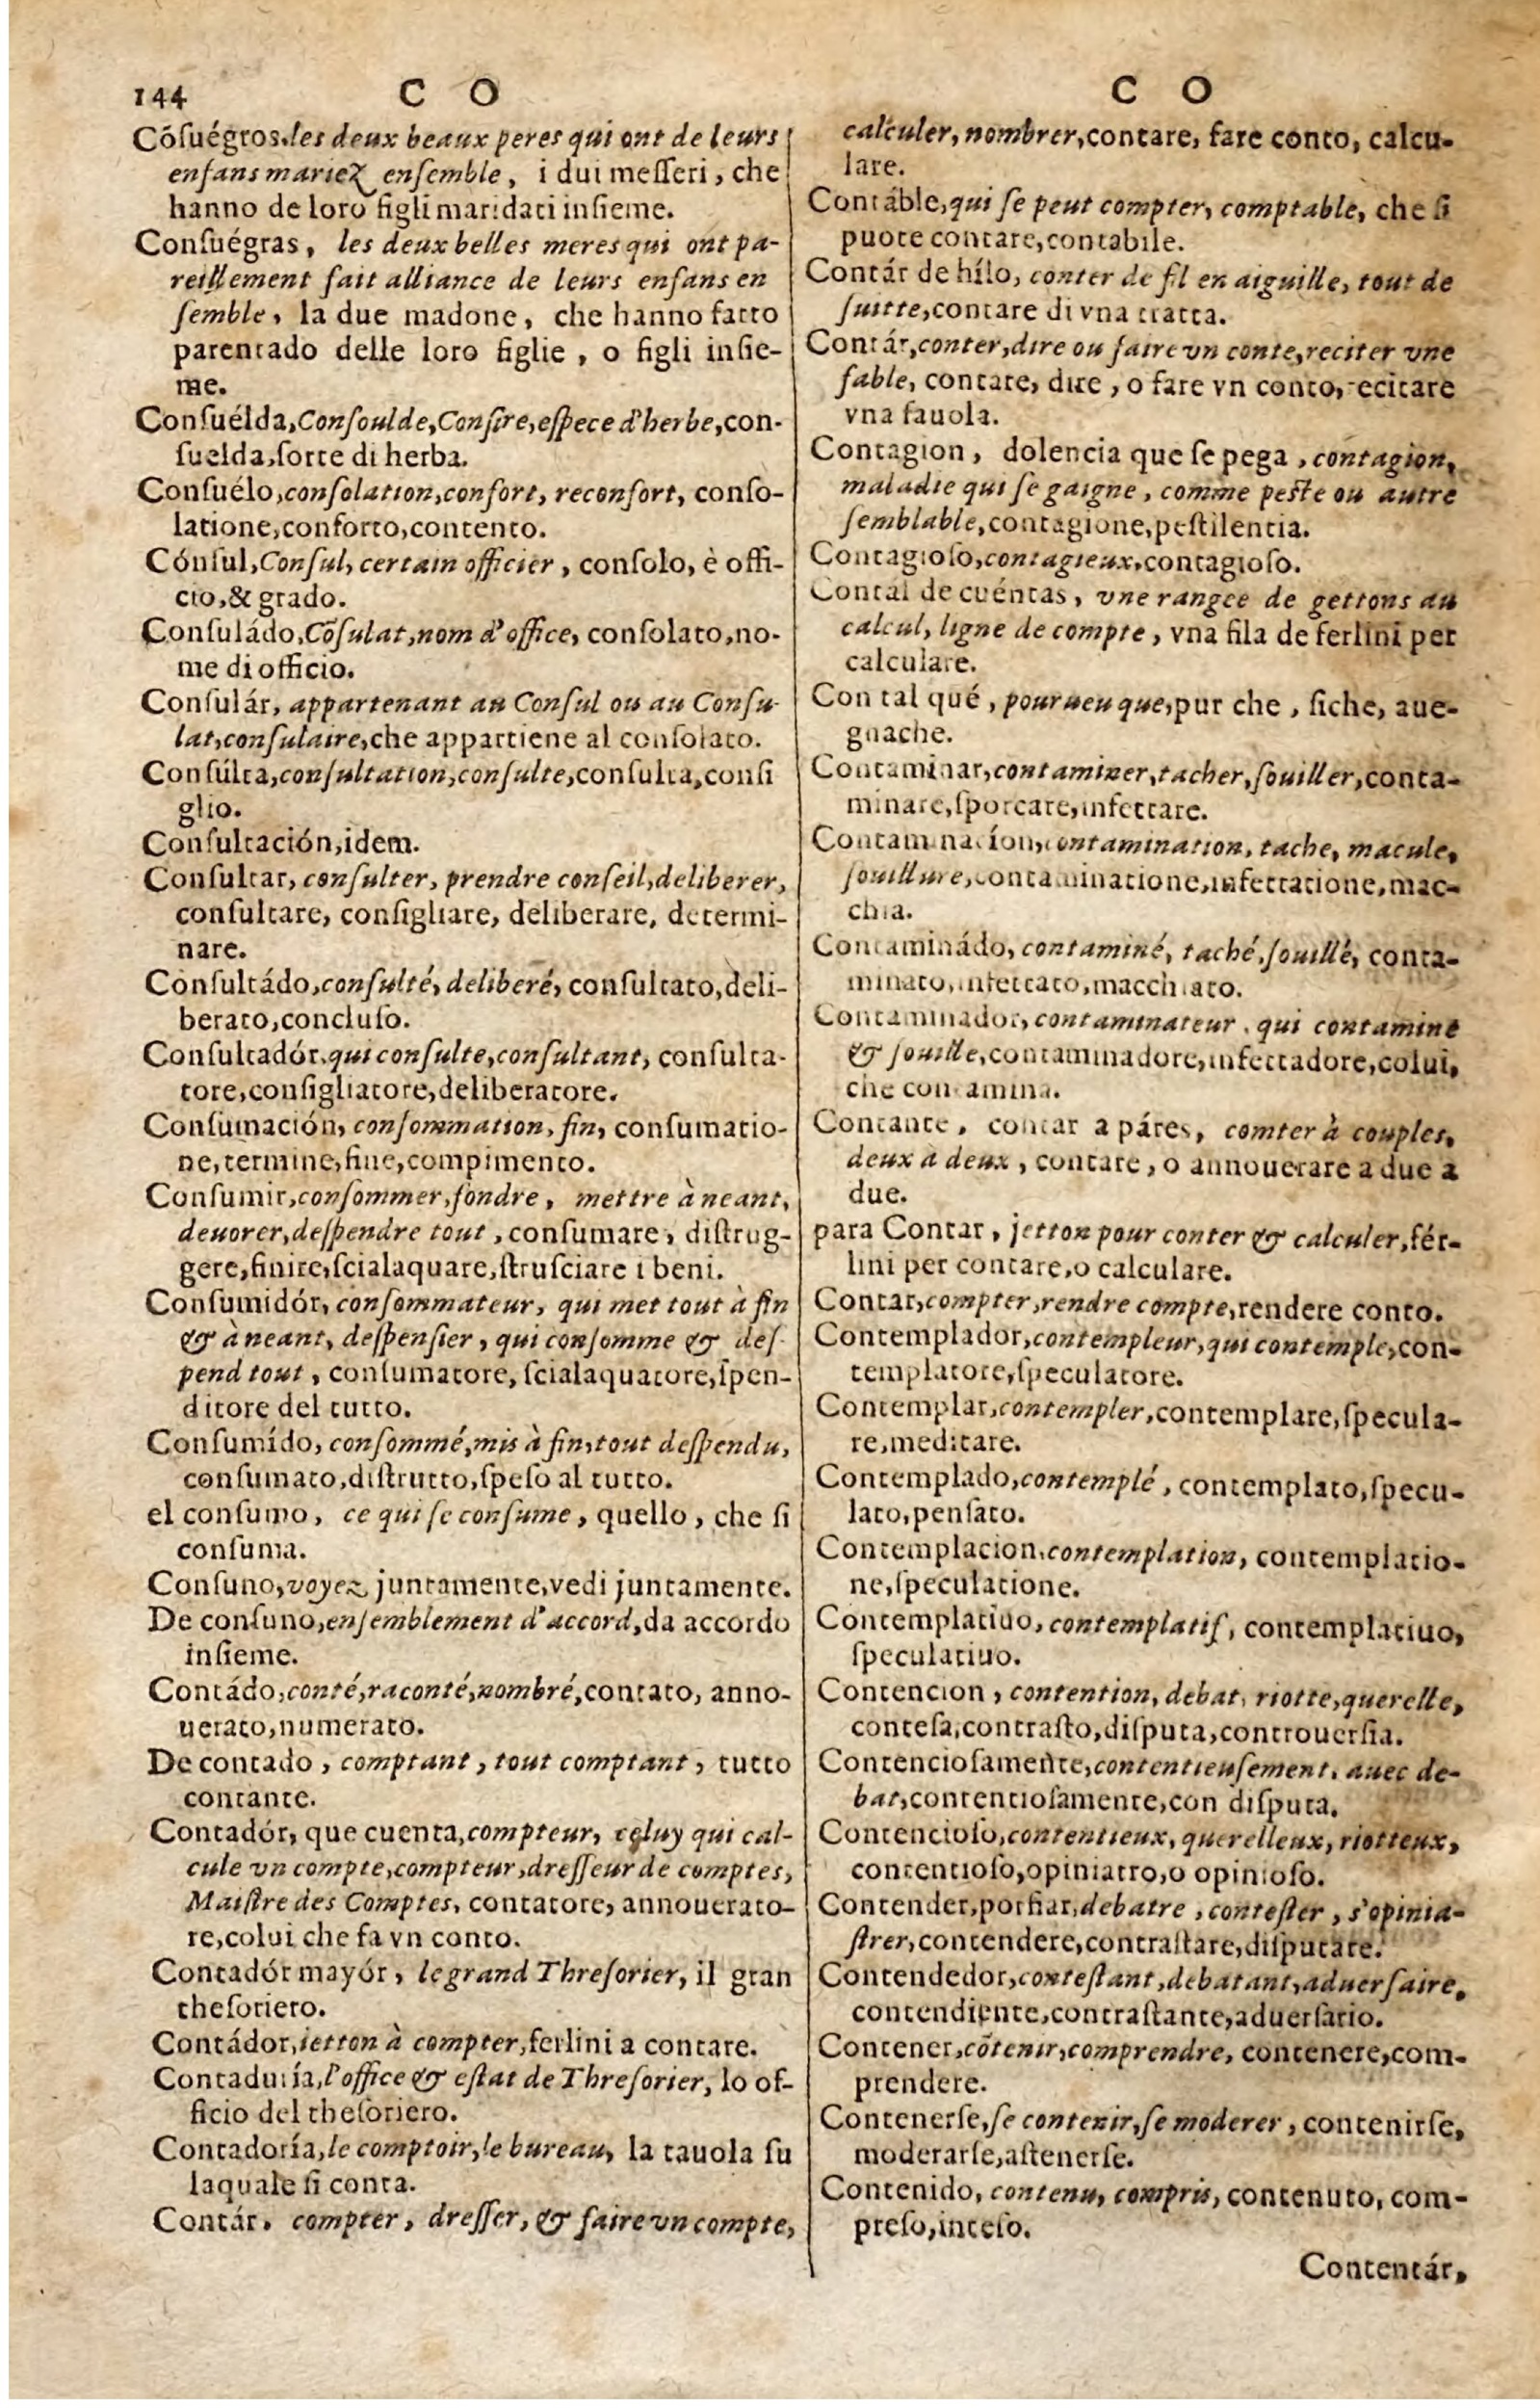 144 C O
Cõſuégros, les deux beaux peres qui ont de leurs
enfans mariez enſemble, i dui meſſeri, che
hanno de loro figli maridati inſieme.
Conſuégras, les deux belles meres qui ont pa-
reillement fait alliance de leurs enfans en
ſemble, la due madone, che hanno fatto
parentado delle loro figlie, o figli inſie-
me.
Conſuélda, Conſoulde, Conſire, eſpece d'herbe, con-
ſuelda, ſorte di herba.
Conſuélo, conſolation, confort, reconfort, conſo-
latione, conforto, contento.
Cónſul, Conſul, certain officier, conſolo, è offi-
cio, & grado.
Conſuládo, Cõſulat, nom d'office, conſolato, no-
me di officio.
Conſulár, appartenant au Conſul ou au Conſu-
lat, conſulaire, che appartiene al conſolato.
Conſúlta, conſultation, conſulte, conſulta, conſi
glio.
Conſultación, idem.
Conſultar, conſulter, prendre conſeil, deliberer,
conſultare, conſigliare, deliberare, determi-
nare.
Conſultádo, conſulté, deliberé, conſultato, deli-
berato, concluſo.
Conſultadór, qui conſulte, conſultant, conſulta-
tore, conſigliatore, deliberatore.
Conſumación, conſommation, fin, conſumatio-
ne, termine, fine, compimento.
Conſumir, conſommer, fondre, mettre à neant,
deuorer, deſpendre tout, conſumare, diſtrug-
gere, finire, ſcialaquare, ſtruſciare i beni.
Conſumidór, conſommateur, qui met tout à fin
& à neant, deſpenſier, qui conſomme & deſ-
pend tout, conſumatore, ſcialaquatore, ſpen-
ditore del tutto.
Conſumído, conſommé, mis à fin, tout deſpendu,
conſumato, diſtrutto, ſpeſo al tutto.
el conſumo, ce qui ſe conſume, quello, che ſi
conſuma.
Conſuno, voyez juntamente, vedi juntamente.
De conſuno, enſemblement d'accord, da accordo
inſieme.
Contádo, conté, raconté, nombré, contato, anno-
uerato, numerato.
De contado, comptant, tout comptant, tutto
contante.
Contadór, que cuenta, compteur, celuy qui cal-
cule vn compte, compteur, dreſſeur de comptes,
Maiſtre des Comptes, contatore, annouerato-
re, colui che fa vn conto.
Contadór mayór, le grand Threſorier, il gran
theſoriero.
Contádor, ietton à compter, ferlini a contare.
Contaduría, l'office & eſtat de Threſorier, lo of-
ficio del theſoriero.
Contadoría, le comptoir, le bureau, la tauola ſu
laquale ſi conta.
Contár, compter, dreſſer, & faire vn compte,
C O
calculer, nombrer, contare, fare conto, calcu-
lare.
Contáble, qui ſe peut compter, comptable, che ſi
puote contare, contabile.
Contár de hílo, conter de fil en aiguille, tout de
ſuitte, contare di vna tratta.
Contár, conter, dire ou faire vn conte, reciter vne
fable, contare, dire, o fare vn conto, recitare
vna fauola.
Contagion, dolencia que ſe pega, contagion,
maladie qui ſe gaigne, comme peſte ou autre
ſemblable, contagione, peſtilentia.
Contagioſo, contagieux, contagioſo.
Contal de cuéntas, vne rangee de gettons au
calcul, ligne de compte, vna fila de ferlini per
calculare.
Con tal qué, pourueu que, pur che, ſiche, aue-
gnache.
Contaminar, contaminer, tacher, ſouiller, conta-
minare, ſporcare, infettare.
Contaminacíon, contamination, tache, macule,
ſouillure, contaminatione, infettatione, mac-
chia.
Contaminádo, contaminé, taché, ſouillé, conta-
minato, infettato, macchiato.
Contaminador, contaminateur, qui contamine
& ſouille, contaminadore, infettadore, colui,
che contamina.
Contante, contar a páres, comter à couples,
deux à deux, contare, o annouerare a due a
due.
para Contar, jetton pour conter & calculer, fér-
lini per contare, o calculare.
Contar, compter, rendre compte, rendere conto.
Contemplador, contempleur, qui contemple, con-
templatore, ſpeculatore.
Contemplar, contempler, contemplare, ſpecula-
re, meditare.
Contemplado, contemplé, contemplato, ſpecu-
lato, penſato.
Contemplacion, contemplation, contemplatio-
ne, ſpeculatione.
Contemplatiuo, contemplatif, contemplatiuo,
ſpeculatiuo.
Contencion, contention, debat, riotte, querelle,
conteſa, contraſto, diſputa, controuerſia.
Contencioſamente, contentieuſement, auec de-
bat, contentioſamente, con diſputa.
Contencioſo, contentieux, querelleux, riotteux,
contentioſo, opiniatro, o opinioſo.
Contender, porfiar, debatre, conteſter, s'opinia-
ſtrer, contendere, contraſtare, diſputare.
Contendedor, conteſtant, debatant, aduerſaire,
contendiente, contraſtante, aduerſario.
Contener, cõtenir, comprendre, contenere, com-
prendere.
Contenerſe, ſe contenir, ſe moderer, contenirſe,
moderarſe, aſtenerſe.
Contenido, contenu, compris, contenuto, com-
preſo, inteſo.
Contentár,